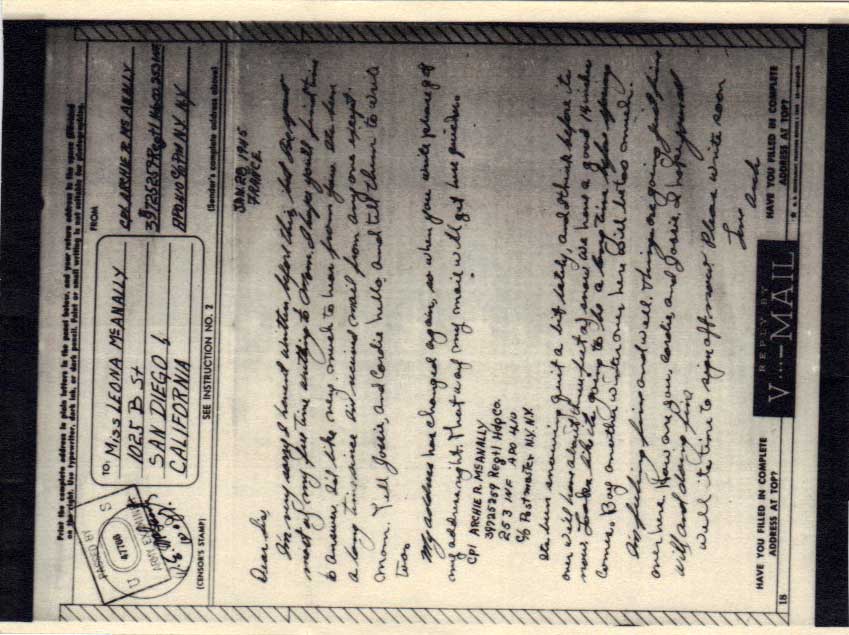 Print the complete address in plain letters in the panel below, and your return address in the space provided
on the right. Use typewriter, dark ink, or dark pencil. Faint or small writing is not suitable for photographing.
PASSED BY
U S
47700
ARMY EXAMINER
(CENSOR'S STAMP)
TO:
MISS LEONA McANALLY
1025 B St
SAN DIEGO 1
CALIFORNIA
SEE INSTRUCTION NO. 2
FROM
CPL ARCHIE R. McANALLY
39725259 Regt'l HdqCo. 253 INF
APO 410 % PM N.Y. N.Y
(Sender's complete address above)
JAN. 28, 1945
FRANCE
Dear Sis,
I'm very sorry I havent written before this, but I've spent
most of my free time writing to Mom. I hope you'll find time
to answer. I'd like very much to hear from you. It's been
a long time since I've received mail from anyone except
Mom. Tell Jossie, and Cordie hello and tell them to write
too.
My address has changed again, so when you write please get
my address right. That way my mail will get here quicker.
Cpl ARCHIE R. McANALLY
39725259 Regt'l HdqCo.
253 INF APO 410
% Postmaster N.Y. N.Y.
Its been snowing quit a bit lately, and I think before its
over we'll have about three feet of snow. We have a good 18 inches
now. Looks like its going to be a long time before spring
comes. Boy another winter over here will be too much.
I'm feeling fine and well. Things are going just fine
over here. How are you, Cordie, and Jossie. I hope your
well, and doing fine.
Well its time to sign off now. Please write soon
Love Arch
HAVE YOU FILLED IN COMPLETE
ADDRESS AT TOP?
REPLY BY
V···—MAIL
HAVE YOU FILLED IN COMPLETE
ADDRESS AT TOP?
18